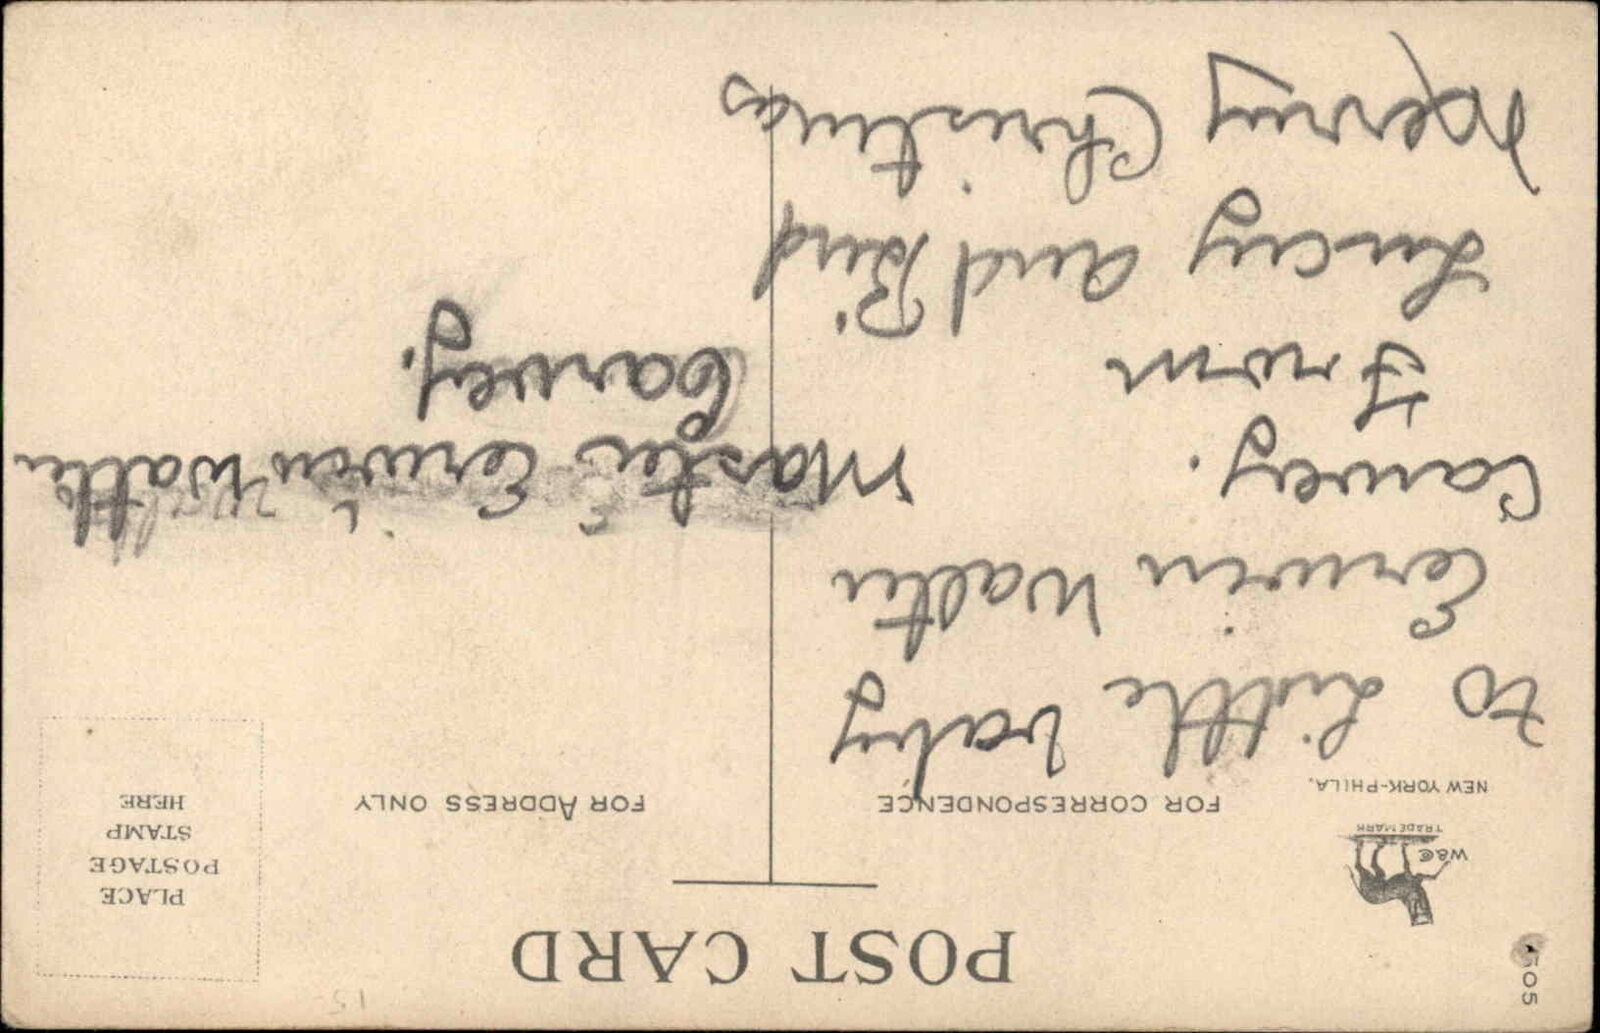 505
POST CARD
W&C
TRADEMARK
NEW YORK-PHILA.
FOR CORRESPONDENCE
FOR ADDRESS ONLY
PLACE
POSTAGE
STAMP
HERE
15
to Little baby
Erwin Walter
Carvey.
From
Lucy and Bird
Merry Christmas
Master Erwin Walter
Carvey.